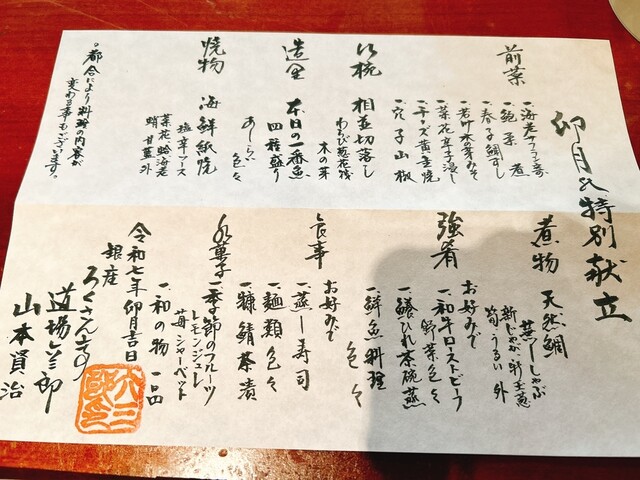 卯月の特別献立
前菜
一、海老サフラン煮
一、鮑柔煮
一、春子鯛すし
一、若竹木の芽みそ
一、菜花辛子浸し
一、チーズ黄金焼
一、穴子山椒
椀
相並切落し
わらび
木の芽
造里
本日の一番魚
四種盛り
あしらい色々
焼物
海鮮紙焼
塩辛ソース
菜花 蛤 海老
外
煮物
天然鯛
蒸しゃぶ
新じゃが、新玉葱
筍、うるい 外
強肴
お好みで
一、和牛ローストビーフ
野菜色々
一、鱶ひれ茶碗蒸
一、鮮魚料理
色々
食事
お好みで
一、蒸し寿司
一、麺類色々
一、糠鯖茶漬
水菓子
一、季節のフルーツ
レモンジュレ
苺シャーベット
一、和の物 一品
令和七年卯月吉日
銀座
ろくさん亭
道場六三郎
山本賢治
。都合により料理の内容が
変わる事もございます。